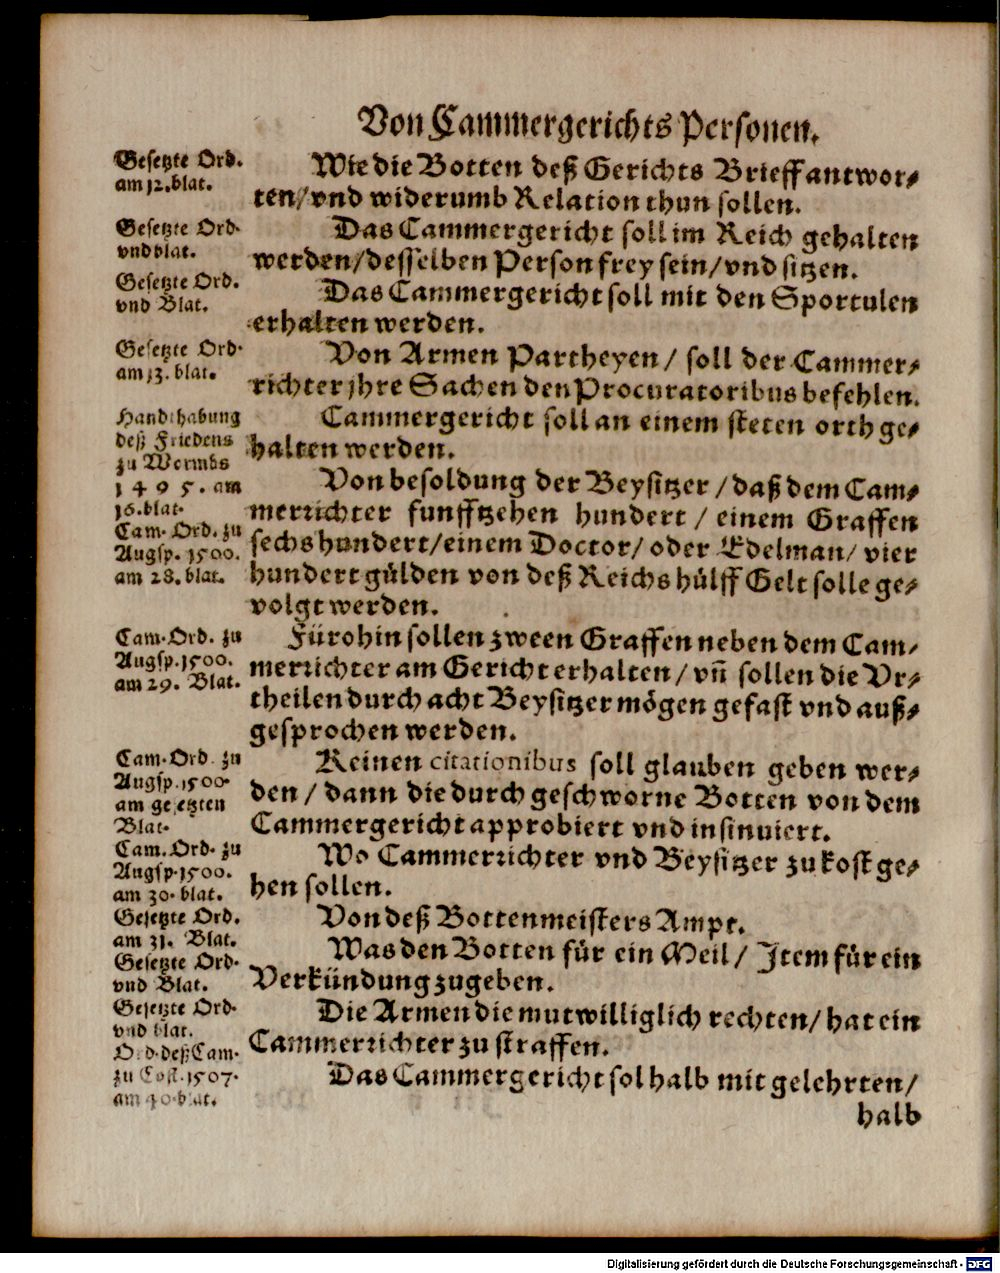 Von Cammergerichts Personen.
Gesetzte Ord.
am 12. blat.
Wie die Botten deß Gerichts Brieff antwor⸗
ten/ vnd widerumb Relation thun sollen.
Gesetzte Ord.
vnd blat.
Das Cammergericht soll im Reich gehalten
werden/ desselben Person frey sein/ vnd sitzen.
Gesetzte Ord.
vnd Blat.
Das Cammergericht soll mit den Sportulen
erhalten werden.
Gesetzte Ord.
am 13. blat.
Von Armen Partheyen/ soll der Cammer⸗
richter jhre Sachen den Procuratoribus befehlen.
Handthabung
deß Friedens
zu Wormbs
1495. am
16. blat.
Cammergericht soll an einem steten orth ge⸗
halten werden.
Cam. Ord. zu
Augsp. 1500.
am 28. blat.
Von besoldung der Beysitzer/ daß dem Cam⸗
merrichter funfftzehen hundert/ einem Graffen
sechs hundert/ einem Doctor/ oder Edelman/ vier
hundert gülden von deß Reichs hülff Gelt solle ge⸗
volgt werden.
Cam. Ord. zu
Augsp. 1500.
am 29. Blat.
Fürohin sollen zween Graffen neben dem Cam⸗
merrichter am Gericht erhalten/ vñ sollen die Vr⸗
theilen durch acht Beysitzer mögen gefast vnd auß⸗
gesprochen werden.
Cam. Ord. zu
Augsp. 1500.
am gesetzten
Blat.
Keinen citationibus soll glauben geben wer⸗
den/ dann die durch geschworne Botten von dem
Cammergericht approbiert vnd insinuiert.
Cam. Ord. zu
Augsp. 1500.
am 30. blat.
Wo Cammerrichter vnd Beysitzer zu kost ge⸗
hen sollen.
Gesetzte Ord.
am 31. Blat.
Von deß Bottenmeisters Ampt.
Gesetzte Ord.
vnd Blat.
Was den Botten für ein Meil/ Item für ein
Verkündung zugeben.
Gesetzte Ord.
vnd blat.
Die Armen die mutwilliglich rechten/ hat ein
Cammerrichter zu straffen.
Ord. deß Cam.
zu Cost. 1507.
am 40. blat.
Das Cammergericht sol halb mit gelehrten/
halb
Digitalisierung gefördert durch die Deutsche Forschungsgemeinschaft - DFG